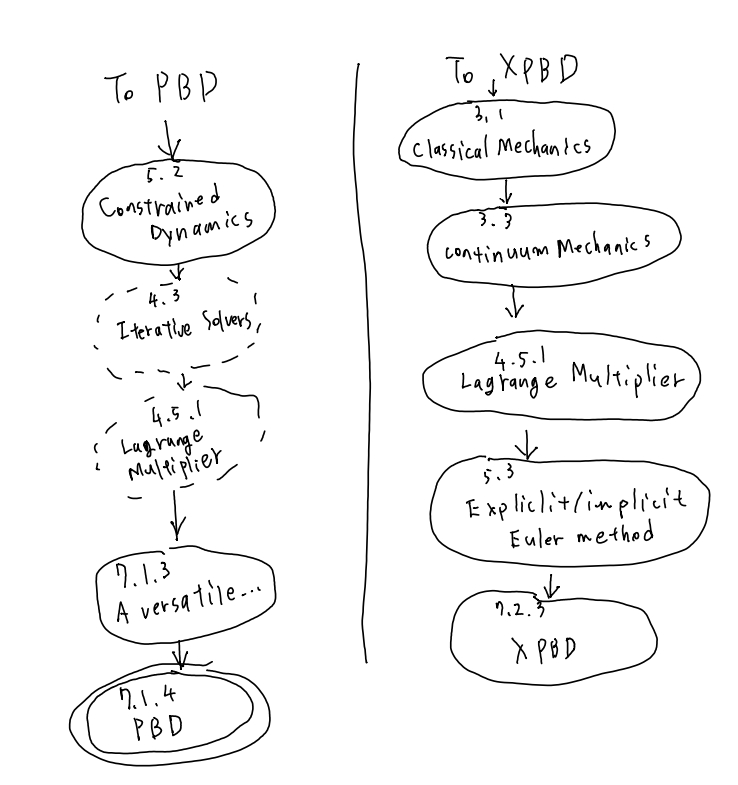 To PBD
5.2
Constrained
Dynamics
4.3
Iterative Solvers
4.5.1
Lagrange
Multiplier
7.1.3
A versatile...
7.1.4
PBD
To XPBD
3.1
Classical Mechanics
3.3
continuum Mechanics
4.5.1
Lagrange Multiplier
5.3
Expliclit/implicit
Euler method
7.2.3
XPBD